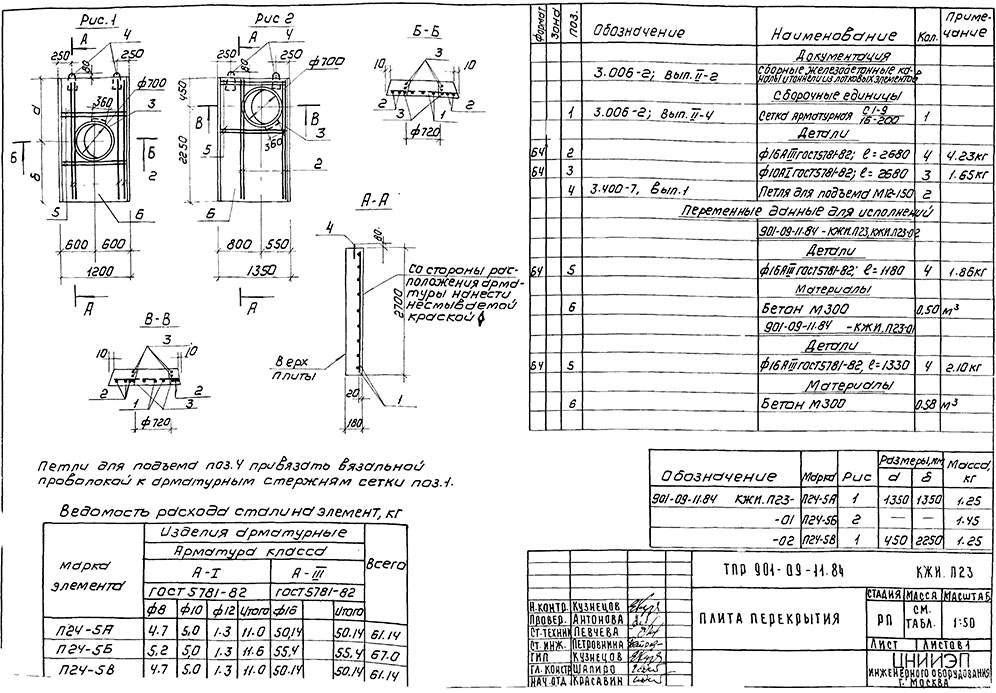 Рис.1
Рис 2
Б-Б
А
4
250
250
80
ф700
360
3
а
Б
Б
2
б
5
6
600
600
1200
А
А
4
250
250
80
ф700
450
В
В
3
360
5
2
2250
6
800
550
1350
А
3
10
10
2
1
2
ф720
А-А
4
80
Со стороны рас-
положения арма-
туры нанести
несмываемой
краской
2700
Верх
плиты
20
180
1
В-В
3
10
10
2
1
3
2
ф720
Петли для подъема поз.4 привязать вязальной
проволокой к арматурным стержням сетки поз.1.
Ведомость расхода стали на элемент, кг
Марка элемента
Изделия арматурные
Всего
Арматура класса
А-I
А-III
ГОСТ 5781-82
ГОСТ 5781-82
ф8 ф10 ф12 Итого ф16 Итого
П24-5А 4.7 5,0 1.3 11.0 50,14 50.14 61.14
П24-5Б 5,2 5,0 1.3 11.6 55,4 55,4 67.0
П24-5В 4.7 5,0 1.3 11.0 50.14 50.14 61.14
Формат Зона Поз. Обозначение Наименование Кол. Приме-чание
Документация
3.006-2; Вып. II-2 Сборные железобетонные ка-
налы и тоннели из лотковых элементов
Сборочные единицы
1 3.006-2; Вып. II-4 Сетка арматурная С1-9/16-200 1
Детали
Б4 2 ф16АIII ГОСТ5781-82; ℓ=2680 4 4.23кг
Б4 3 ф10АI ГОСТ5781-82; ℓ=2680 3 1.65кг
4 3.400-7, Вып.1 Петля для подъема М12-150 2
Переменные данные для исполнений
901-09-11.84 - КЖИ.П23, КЖИ.П23-02
Детали
Б4 5 ф16АIII ГОСТ5781-82; ℓ=1180 4 1.86кг
Материалы
6 Бетон М300 0.50 м³
901-09-11.84 - КЖИ.П23-01
Детали
Б4 5 ф16АIII ГОСТ5781-82, ℓ=1330 4 2.10кг
Материалы
6 Бетон М300 0.58 м³
Обозначение Марка Рис Размеры, мм Масса, кг
а б
901-09-11.84 КЖИ.П23- П24-5А 1 1350 1350 1.25
-01 П24-5Б 2 — — 1.45
-02 П24-5В 1 450 2250 1.25
ТПР 901-09-11.84 КЖИ.П23
Н.КОНТР. КУЗНЕЦОВ
ПРОВЕР. АНТОНОВА
СТ.ТЕХНИК ПЕВЧЕВА
СТ. ИНЖ. ПЕТРОВНИНА
ГИП КУЗНЕЦОВ
ГЛ. КОНСТР ШАПИРО
НАЧ ОТД КРАСАВИН
ПЛИТА ПЕРЕКРЫТИЯ
СТАДИЯ МАССА МАСШТАБ
РП СМ. ТАБЛ. 1:50
ЛИСТ ЛИСТОВ 1
ЦНИИЭП
ИНЖЕНЕРНОГО ОБОРУДОВАНИЯ
Г. МОСКВА